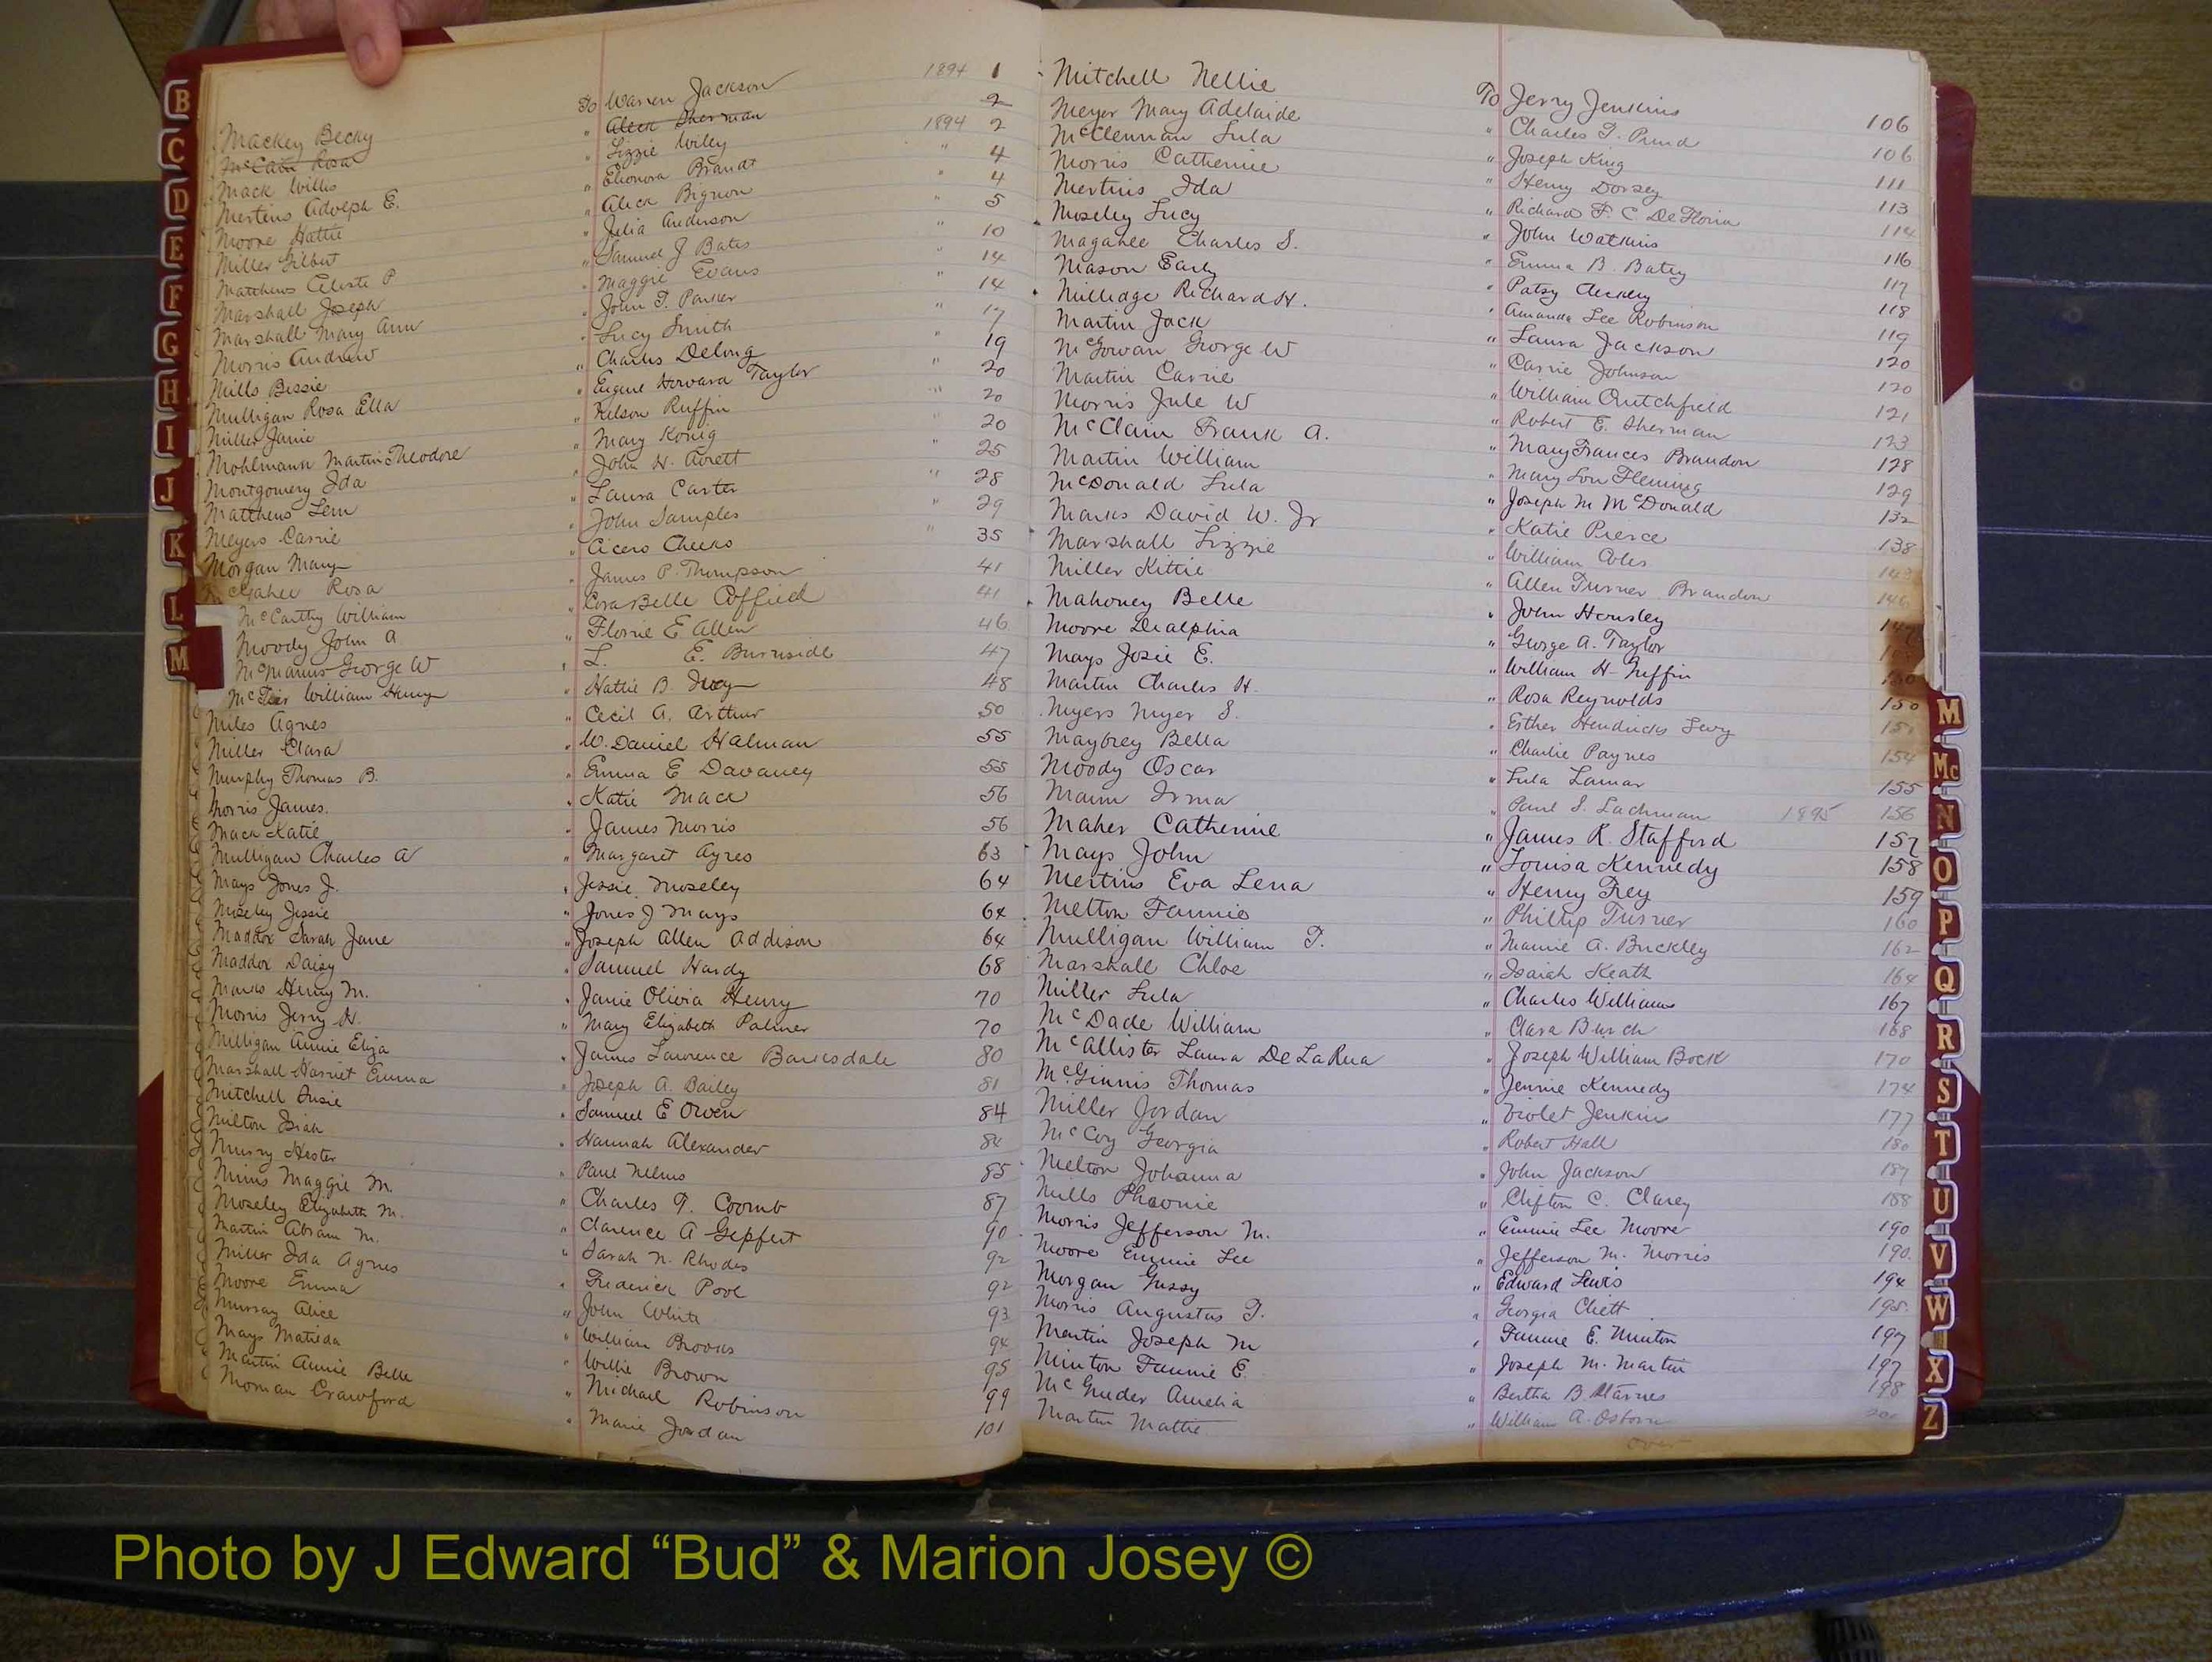 Mackey Becky To Warren Jackson 1894 1
McCabe Rosa " Aleck Sherman 2
Mack Willis " Lizzie Wiley 1894 2
Mertins Adolph E. " Elionora Brandt " 4
Moore Hattie " Aleck Bignon " 4
Miller Gilbert " Julia Anderson " 5
Matthews Celeste P " Samuel J Bates " 10
Marshall Joseph " Maggie Evans " 14
Marshall Mary Ann " John T. Parker " 14
Morris Andrew " Lucy Smith " 17
Mills Bessie " Charles Delong " 19
Mulligan Rosa Ella " Eugene Howard Taylor " 20
Miller Janie " Nelson Ruffin " 20
Mohlmann Martin Theodore " Mary Konig " 20
Montgomery Ida " John H. Avrett " 25
Matthews Lem " Laura Carter " 28
Meyers Carrie " John Samples " 29
Morgan Mary " Cicero Cheeks " 35
Gahee Rosa " James P. Thompson 41
McCarthy William " Cora Belle Coffield 41
Moody John A " Florrie E Allen 46
McManus George W " L. E. Burnside 47
William Henry " Hattie B. 48
Miles Agnes " Cecil A. Arthur 50
Miller Clara " W. Daniel Halman 55
Murphy Thomas B. " Emma E Davaney 55
Morris James. " Katie Mack 56
Mack Katie " James Morris 56
Mulligan Charles A " Margaret Ayres 63
Mays Jones J. " Jessie Moseley 64
Moseley Jessie " Jones J Mays 64
Maddox Sarah Jane " Joseph Allen Addison 64
Maddox Daisy " Samuel Hardy 68
Marks Henry M. " Janie Olivia Henry 70
Morris Jerry H. " Mary Elizabeth Palmer 70
Milligan Annie Eliza " James Lawrence Barksdale 80
Marshall Harriet Emma " Joseph A. Bailey 81
Mitchell Susie " Samuel E Owen 84
Milton Isiah " Hannah Alexander 84
Murry Hester " Paul Nelms 85
Mims Maggie M. " Charles T. Coomb 87
Moseley Elizabeth M. " Clarence A Gepfert 90
Martin Abram M. " Sarah N. Rhodes 92
Miller Ida Agnes " Frederick Pool 92
Moore Emma " John White 93
Murray Alice " William Brooks 94
Mays Matilda " Willie Brown 95
Martin Annie Belle " Michael Robinson 99
Morman Crawford " Marie Jordan 101
Mitchell Nellie To Jerry Jenkins 106
Meyer Mary Adelaide " Charles T. Pund 106
McClennan Lula " Joseph King 111
Morris Catherine " Henry Dorsey 113
Mertins Ida " Richard F. C DeFloria 114
Moseley Lucy " John Watkins 116
Magahee Charles S. " Emma B. Batey 117
Mason Early " Patsy 118
Milledge Richard H. " Amanda Lee Robinson 119
Martin Jack " Laura Jackson 120
McGowan George W " Carrie Johnson 120
Martin Carrie " William Crutchfield 121
Morris Jule W " Robert E. Sherman 123
McClain Frank A. " Mary Frances Brandon 128
Martin William " Mary Lou Fleming 129
McDonald Lula " Joseph M McDonald 132
Marks David W. Jr " Katie Pierce 138
Marshall Lizzie " William Coles
Miller Kittie " Allen Turner Brandon 146
Mahoney Belle " John Hensley
Moore Dealphia " George A. Taylor
Mays Josie E. " William H Griffin 150
Martin Charles H. " Rosa Reynolds 150
Myers Myer S. " Esther Hendricks Levy
Maybrey Bella " Charlie Paynes 154
Moody Oscar " Lula Lamar 155
Mann Irma " Paul S. Lachman 1895 156
Maher Catherine " James R. Stafford 157
Mays John " Louisa Kennedy 158
Mertins Eva Lena " Henry Frey 159
Melton Fannie " Phillip Turner 160
Mulligan William T. " Mamie A. Buckley 162
Marshall Chloe " Isaiah Keath 164
Miller Lula " Charles Williams 167
McDade William " Clara Burch 168
McAllister Laura DeLaRua " Joseph William Bock 170
McGinnis Thomas " Jennie Kennedy 174
Miller Jordan " Violet Jenkins 177
McCoy Georgia " Robert Hall 180
Melton Johanna " John Jackson 187
Mills Pheonie " Clifton C. Clarey 188
Morris Jefferson M. " Emmie Lee Moore 190
Moore Emmie Lee " Jefferson M. Morris 190
Morgan Gussy " Edward Lewis 194
Morris Augustus T. " Georgia Clett 195
Martin Joseph M " Fannie E. Minton 197
Minton Fannie E. " Joseph M. Martin 197
McGruder Amelia " Bertha B. Starnes 198
Martin Mattie " William A. Osborn
over
B
C
D
E
F
G
H
I
J
K
L
M
M
Mc
N
O
P
Q
R
S
T
U
V
W
X
Z
Photo by J Edward “Bud” & Marion Josey ©